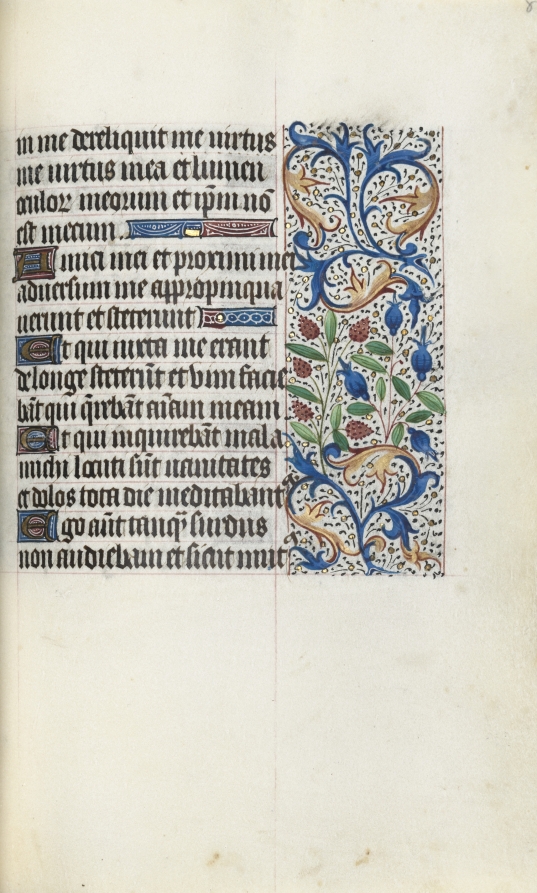 in me dereliquit me uirtus
me uirtus mea et lumen
oculoꝝ meorum et ip̄m nō
est mecum
Amici mei et proximi mei
aduersum me appropinqua
uerunt et steterunt
Et qui iuxta me erant
de longe steterūt et vim facie
bāt qui q̄rebāt aīam meam
Et qui inquirebāt mala
michi locuti sūt uanitates
et dolos tota die meditabant᷑
Ego aūt tanqꝫ surdus
non audiebam et sicut mut᷒